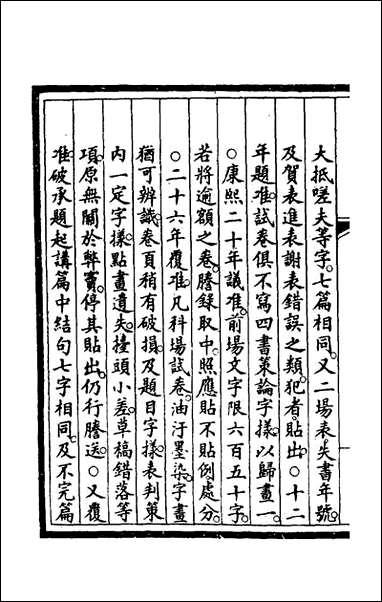 大抵嗟夫等字。七篇相同。又二場表失書年號。
及賀表進表謝表錯誤之類。犯者貼出。○十二
年題准。試卷俱不寫四書策論字樣。以歸畫一。
○康熙二十年議准。前場文字限六百五十字。
若將逾額之卷。謄錄取中。照應貼不貼例處分。
○二十六年覆准。凡科場試卷。油汙墨染。字畫
猶可辨識。卷頁稍有破損。及題目字樣。表判策
內一定字樣。點畫遺失。擡頭小差。草稿錯落等
項。原無關於弊竇。停其貼出。仍行謄送。○又覆
准。破承題起講篇中結句七字相同。及不完篇